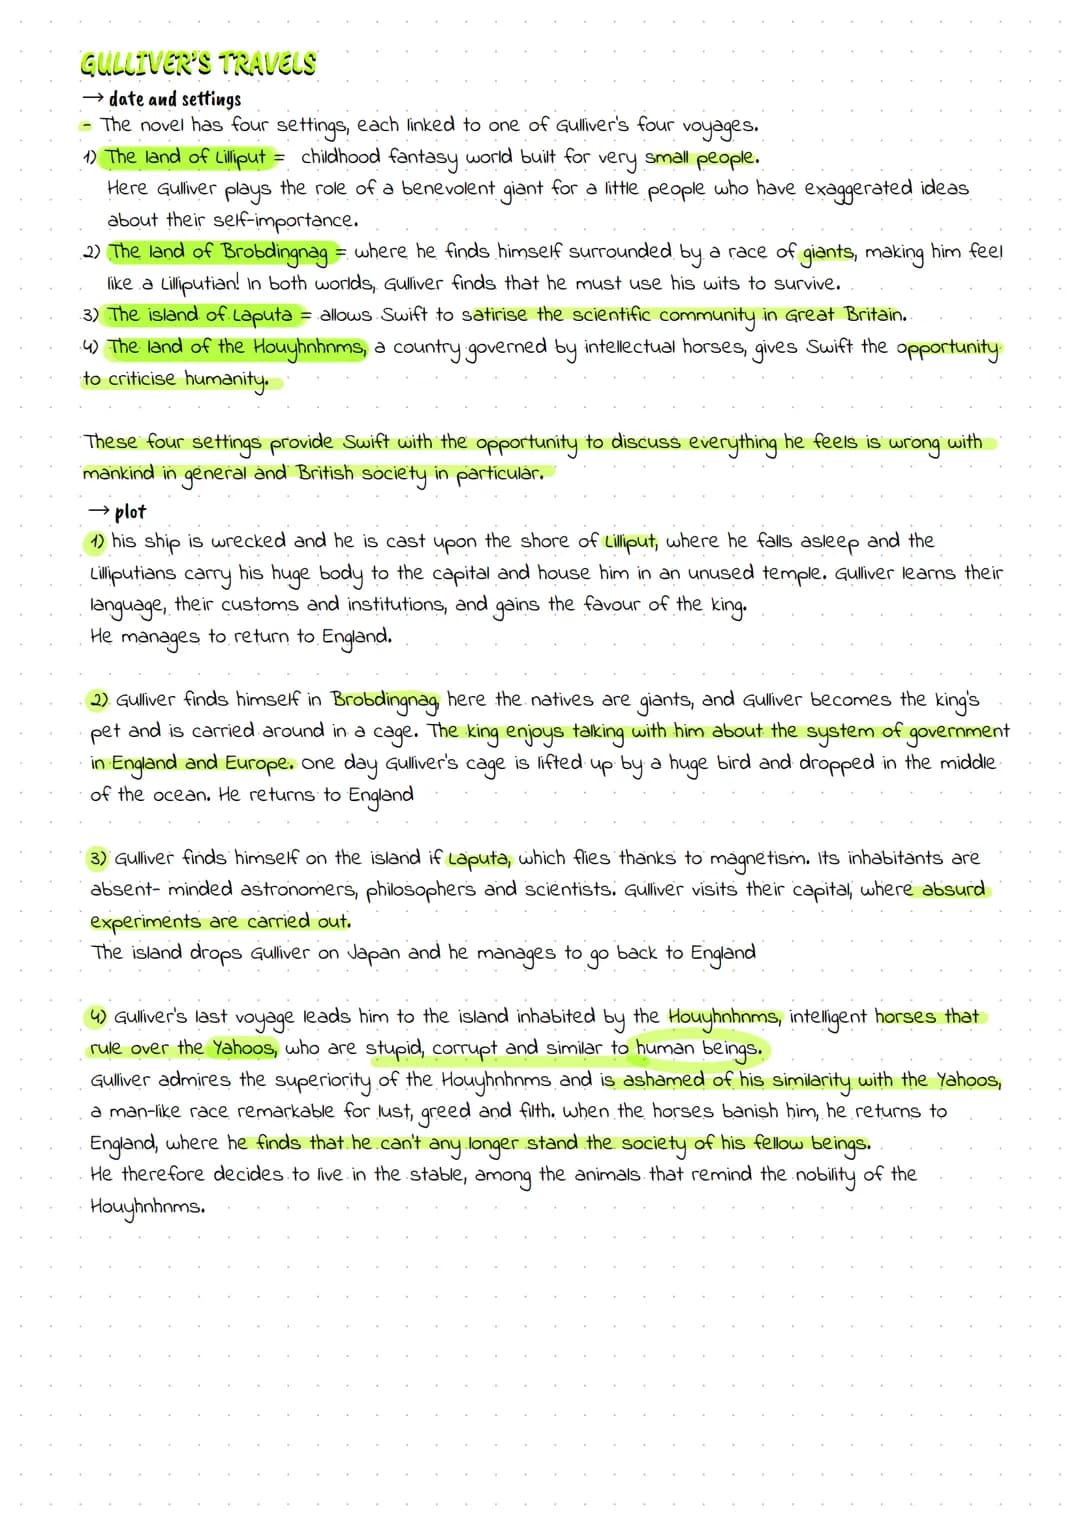 GULLIVER'S TRAVELS
→ date and settings
- The novel has four settings, each linked to one of Gulliver's four voyages.
1) The land of Lilliput = childhood fantasy world built for very small people.
Here Gulliver plays the role of a benevolent giant for a little people who have exaggerated ideas
about their self-importance.
2) The land of Brobdingnag = where he finds himself surrounded by a race of giants, making him feel
like a Lilliputian! In both worlds, Gulliver finds that he must use his wits to survive.
3) The island of Laputa = allows Swift to satirise the scientific community in Great Britain.
4) The land of the Houyhnhnms, a country governed by intellectual horses, gives Swift the opportunity
to criticise humanity.
These four settings provide Swift with the opportunity to discuss everything he feels is wrong with
mankind in general and British society in particular.
→ plot
1) his ship is wrecked and he is cast upon the shore of Lilliput, where he falls asleep and the
Lilliputians carry his huge body to the capital and house him in an unused temple. Gulliver learns their
language, their customs and institutions, and gains the favour of the king.
He manages to return to England.
2) Gulliver finds himself in Brobdingnag, here the natives are giants, and Gulliver becomes the king's
pet and is carried around in a cage. The king enjoys talking with him about the system of government
in England and Europe. One day Gulliver's cage is lifted up by a huge bird and dropped in the middle
of the ocean. He returns to England
3) Gulliver finds himself on the island if Laputa, which flies thanks to magnetism. Its inhabitants are
absent- minded astronomers, philosophers and scientists. Gulliver visits their capital, where absurd
experiments are carried out.
The island drops Gulliver on Japan and he manages to go back to England
4) Gulliver's last voyage leads him to the island inhabited by the Houyhnhnms, intelligent horses that
rule over the Yahoos, who are stupid, corrupt and similar to human beings.
Gulliver admires the superiority of the Houyhnhnms and is ashamed of his similarity with the Yahoos,
a man-like race remarkable for lust, greed and filth. When the horses banish him, he returns to
England, where he finds that he can't any longer stand the society of his fellow beings.
He therefore decides to live in the stable, among the animals that remind the nobility of the
Houyhnhnms.